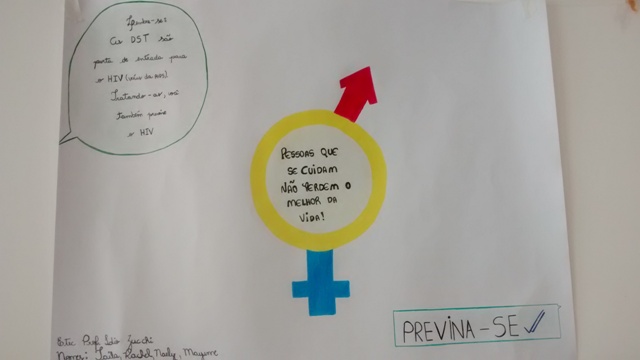 Lembre-se:
As DST são
porta de entrada para
o HIV (vírus da AIDS)
Tratando-as, você
também previne
o HIV
PESSOAS QUE
SE CUIDAM
NÃO PERDEM O
MELHOR DA
VIDA!
PREVINA-SE
Prof.
Nomes: Taila, Rachel, Maycon